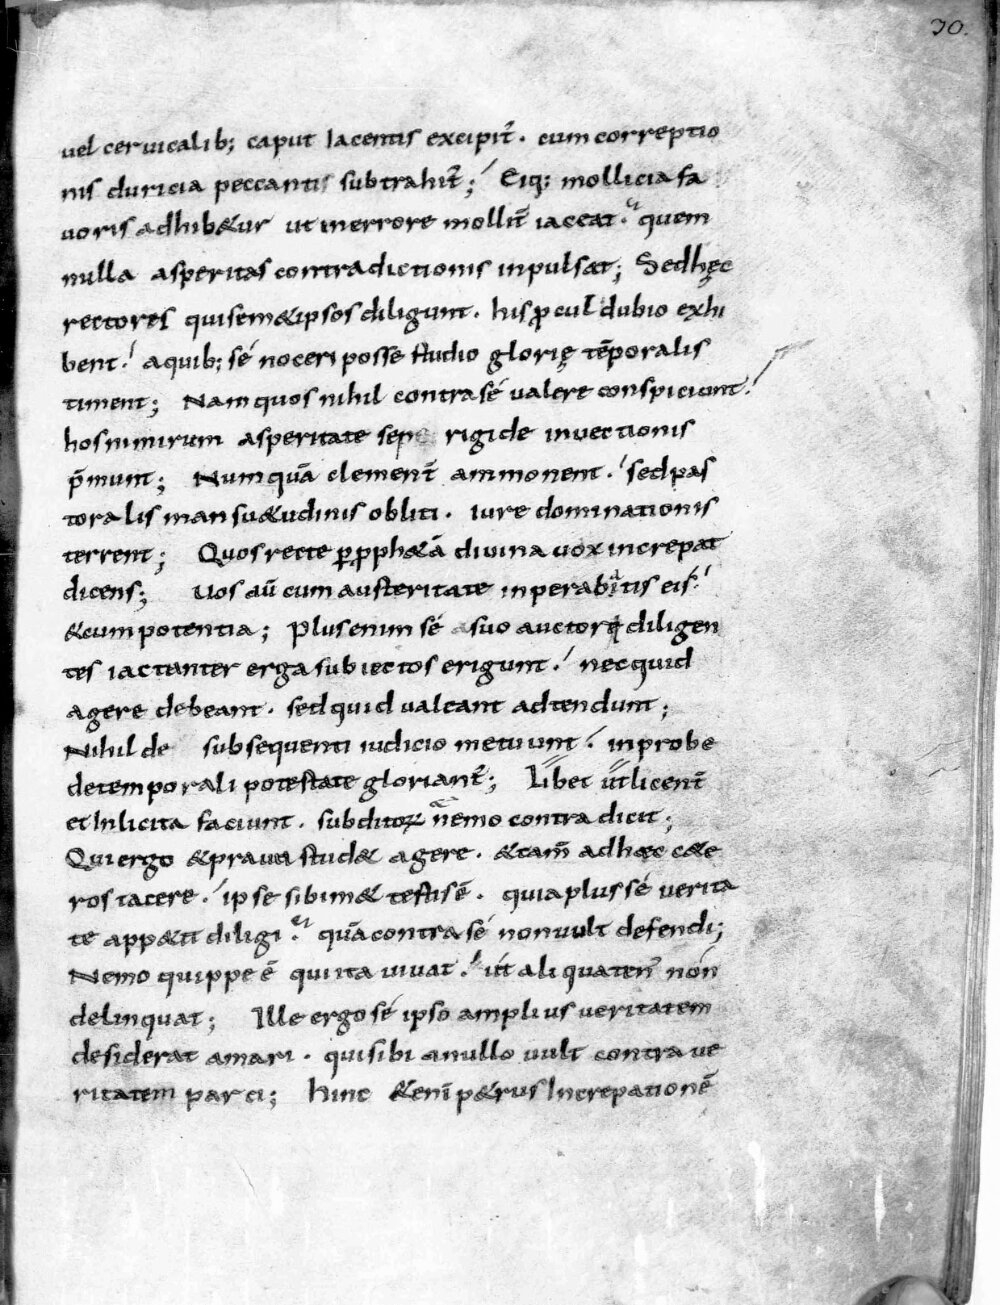 70.
uel ceruicalib; caput Iacentis excipit̄. cum correptio
nis duricia peccantis subtrahit̄; Eiq; mollicia fa
uoris adhib&ur ut inerrore mollit̄ iaceat. quem
nulla asperitas contradictionis inpulsat; Sedhęc
rectores quisem&ipsos diligunt. his ꝓcul dubio exhi
bent. aquib; sé noceri posse studio glorię tēporalis
timent; Nam quos nihil contra sé ualere conspiciunt.
hos nimirum asperitate sepe rigide inuectionis
p̄munt; Numquā clement̄ ammonent. sed pas
toralis mansu&udinis obliti. iure dominationis
terrent; Quos recte ꝑ ꝓph&ā diuina uox increpat
dicens; Uos aū cum austeritate inperabitis eis.
&cum potentia; Plus enim sé a suo auctore diligen
tes iactanter erga subiectos erigunt. nec quid
agere debeant. sed quid ualeant adtendunt;
Nihil de subsequenti iudicio metuunt. inprobe
detemporali potestate gloriant̄; Libet ut licent̄
et Inlicita faciunt. subditoꝝ nemo contradicit;
Qui ergo &praua stud& agere. &tam̄ adhęc c&e
ros tacere. ipse sibim& testis ē. quia plus sé uerita
te app&it diligi. quā contra sé non uult defendi;
Nemo quippe ē qui ita uiuat. ut aliquaten̄ non
delinquat; Ille ergo sé ipso amplius ueritatem
desiderat amari. qui sibi anullo uult contra ue
ritatem parci; Hinc &enī p&rus Increpationē